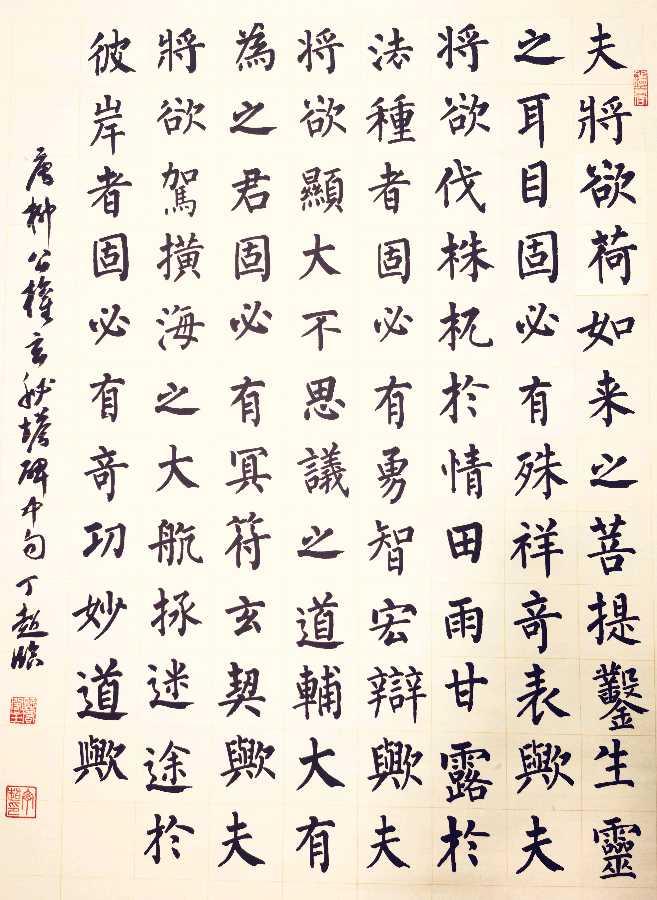 夫將欲荷如来之菩提鑿生靈
之耳目固必有殊祥竒表歟夫
将欲伐株杌於情田雨甘露於
法種者固必有勇智宏辯歟夫
将欲顯大不思議之道輔大有
為之君固必有冥符玄契歟夫
將欲駕橫海之大航拯迷途於
彼岸者固必有竒功妙道歟
唐柳公權玄秘塔碑中句丁超臨